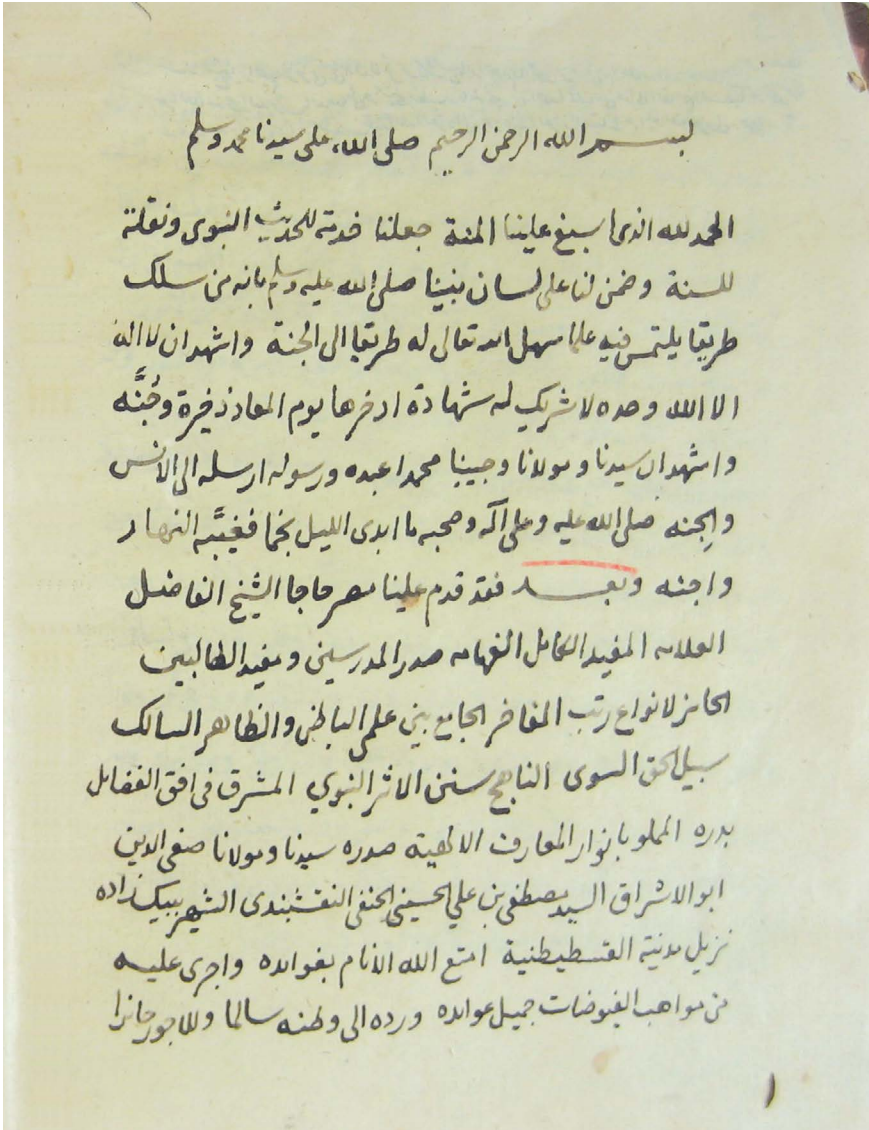 بسم الله الرحمن الرحيم صلى الله على سيدنا محمد وسلم
الحمد لله الذى اسبغ علينا المنة جعلنا خدمة للحديث النبوى ونقلة
للسنة وضمن لنا على لسان نبينا صلى الله عليه وسلم بانه من سلك
طريقا يلتمس فيه علما سهل الله تعالى له طريقا الى الجنة واشهد ان لا اله
الا الله وحده لا شريك له شهادة ادخرها يوم المعاد ذخيرة وجُنَّه
واشهد ان سيدنا ومولانا وحبيبنا محمدا عبده ورسوله ارسله الى الانس
والجنه صلى الله عليه وعلى آله وصحبه ما ابدى الليل نجما فغيَّبه النهار
واجنه وبعد فقد قدم علينا مصر حاجا الشيخ الفاضل
العلامه المفيد الكامل الفهامه صدر المدرسين ومفيد الطالبين
الحائز لانواع رتب المفاخر الجامع بين علمى الباطن والظاهر السالك
سبيل الحق السوى الناهج سنن الاثر النبوي المشرق فى افق الفضائل
بدره المملو بانوار المعارف الالهية صدره سيدنا ومولانا صفى الدين
ابو الاشراق السيد مصطفى بن علي الحسينى الحنفى النقشبندى الشهير ببيك زاده
نزيل مدينة القسطيطنية امتع الله الانام بفوائده واجرى عليه
من مواهب الفيوضات جميل عوائده ورده الى وطنه سالما وللاجور حائزا
١